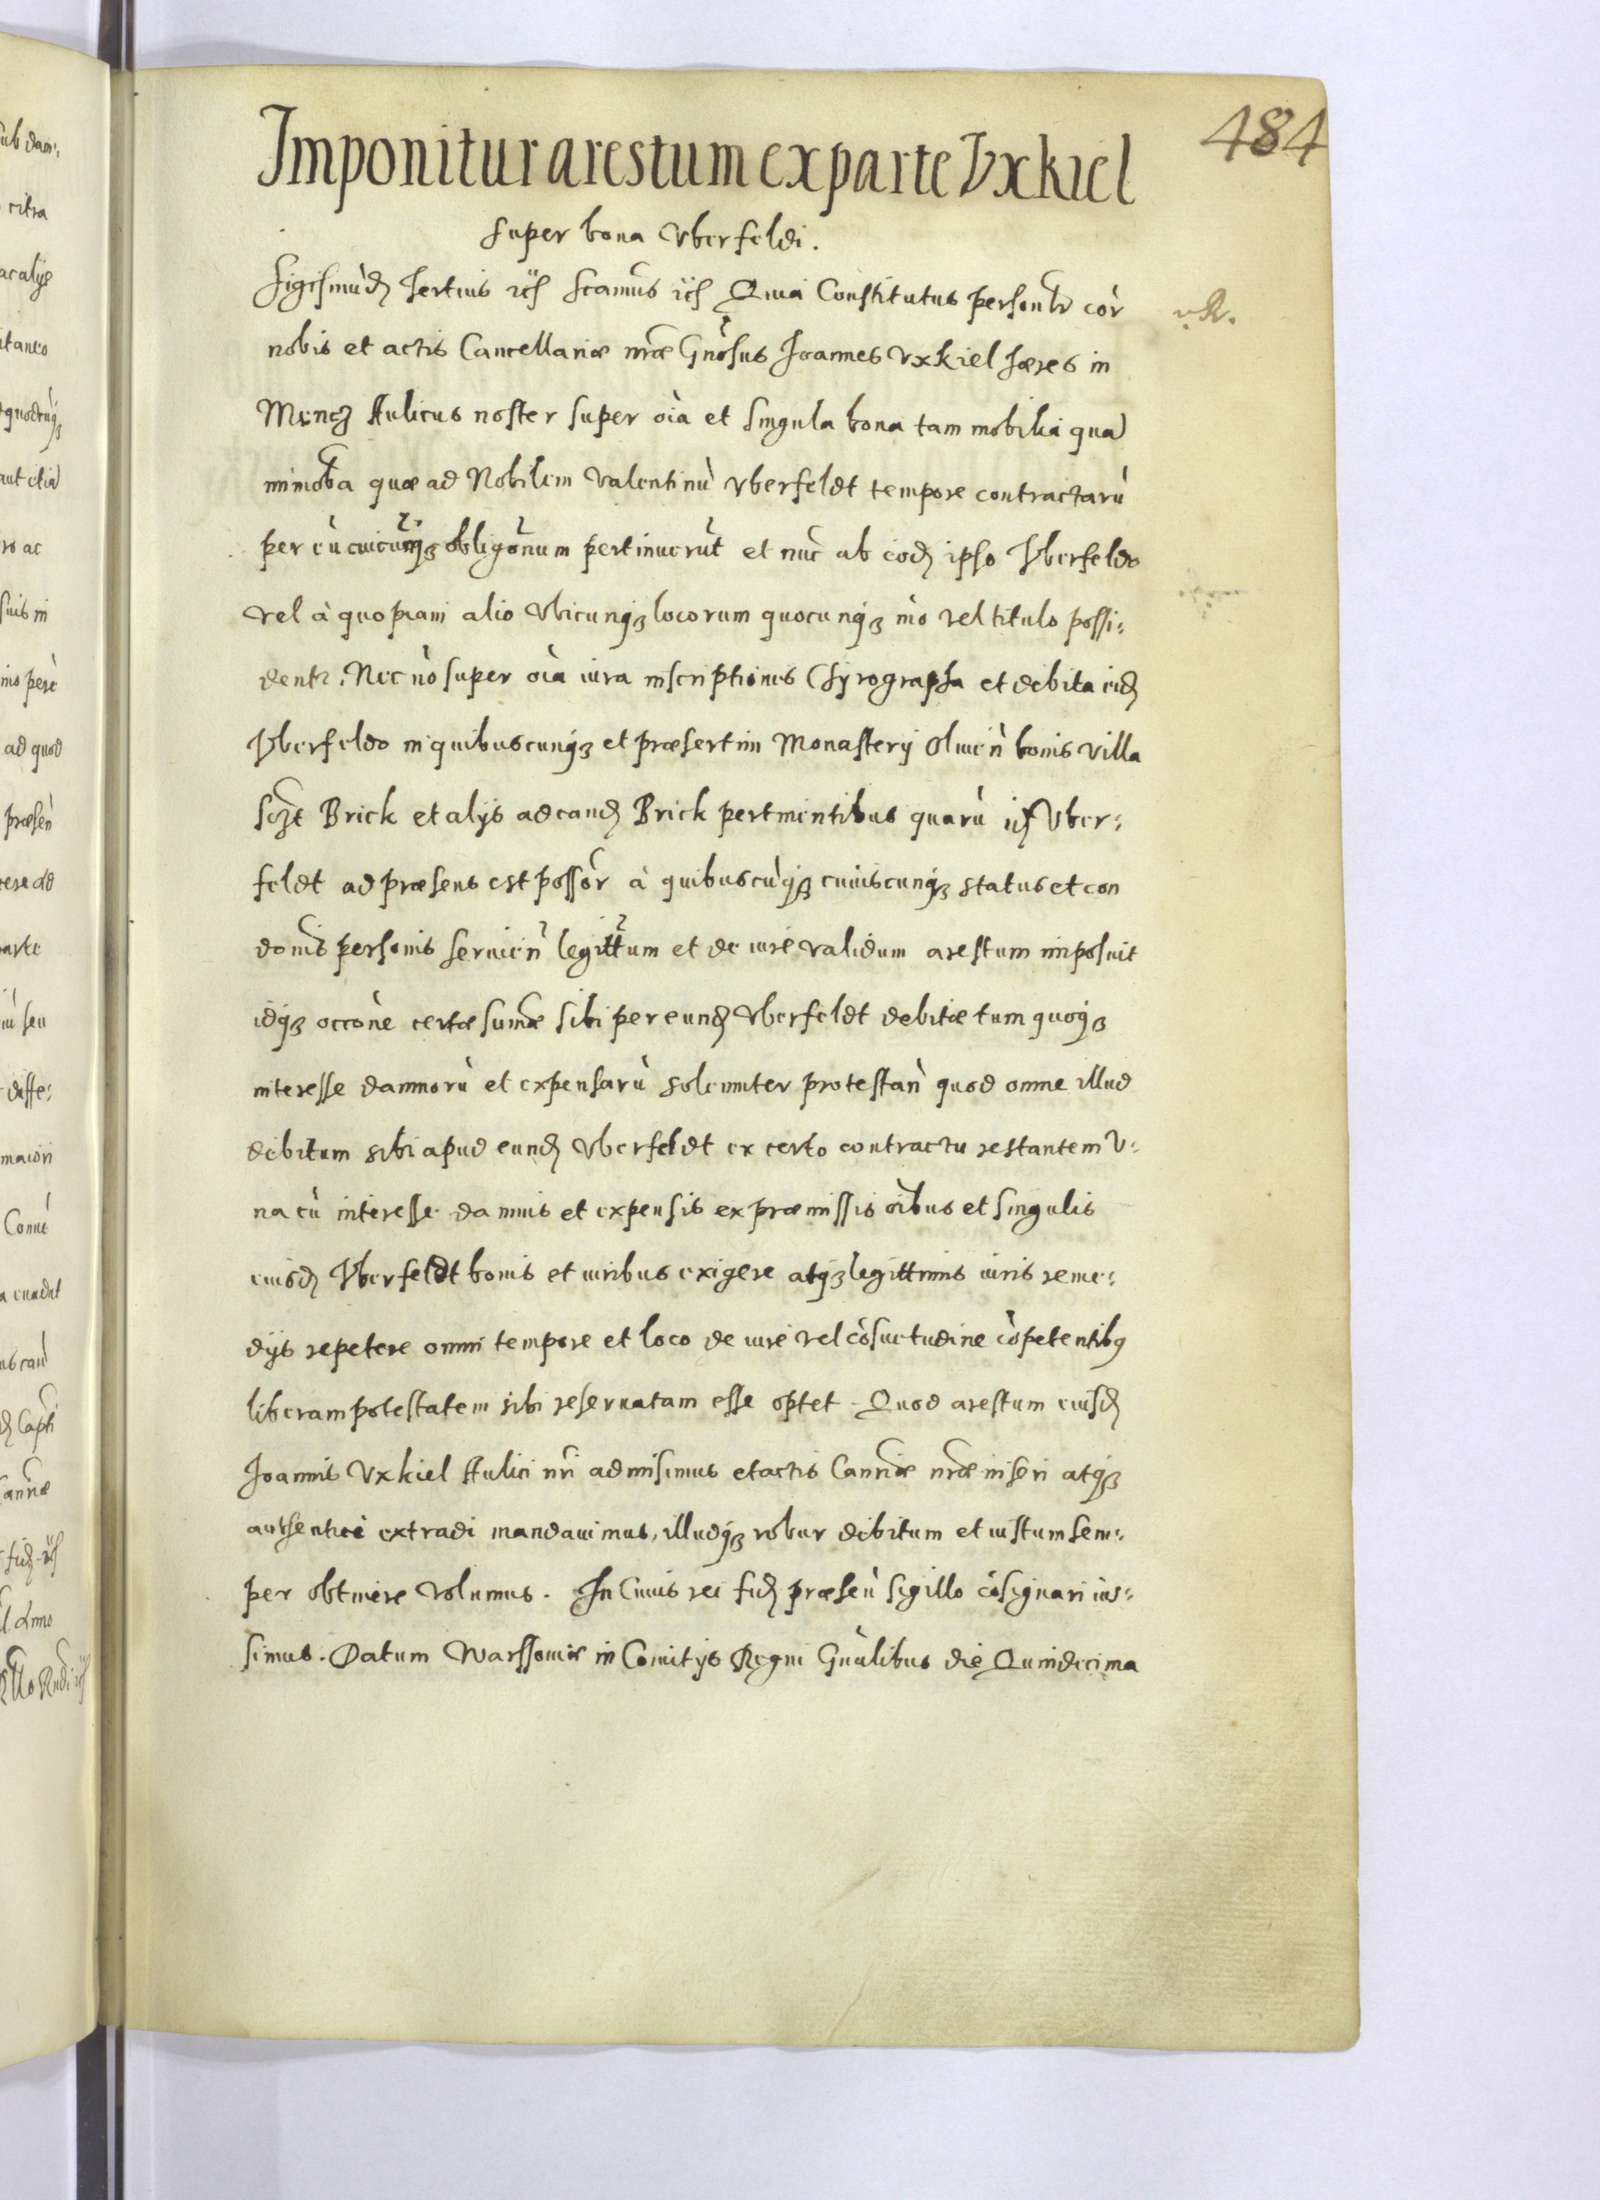 484
Imponitur arestum ex parte Vxkiel
super bona Vberfeldi.
Sigismūdꝫ Tertius etc̄ Scamūs etc̄ Quia Constitutus personlr corā
nobis et actis Cancellariæ nr̄æ Gn̄osus Joannes Vxkiel hæres in
Mencz Aulicus noster super oīa et singula bona tam mobilia quā
immob̄a quæ ad Nobilem Valentinū Vberfeldt tempore contractarū
per eū cuicūnqꝫ obligōnum pertinuerūt et nūc ab eodꝫ ipso Vberfeldo
vel à quopiam alio vbicunqꝫ locorum quocunqꝫ mō vel titulo possi=
dentr. Nec nō super oīa iura inscriptiones Chyrographa et debita eidꝫ
Vberfeldo in quibuscunqꝫ et præsertim Monasterij Oliuēn bonis villa
sczt Brick et alijs ad eandꝫ Brick pertinentibus quarū idꝫ Vber=
feldt ad præsens est possōr à quibuscūqꝫ cuiuscunqꝫ status et con
dōnis personis seruieñ legittum et de iure validum arestum imposuit
idqꝫ occōne certæ sum̄æ sibi per eundꝫ Vberfeldt debitæ tum quoqꝫ
interesse damnorū et expensarū solenniter protestañ quod omne illud
debitum sibi apud eundꝫ Vberfeldt ex certo contractu restantem v=
na cū interesse damnis et expensis ex præmissis oībus et singulis
eiusdꝫ Vberfeldt bonis et iuribus exigere atqꝫ legittimis iuris reme=
dijs repetere omni tempore et loco de iure vel cōsuetudine cōpetentibꝰ
liberam potestatem sibi reseruatam esse optet. Quod arestum eiusdꝫ
Joannis Vxkiel Aulici nr̄i admisimus et actis Canr̄iæ nr̄æ inseri atqꝫ
authenticè extradi mandauimus, illudqꝫ robur debitum et iustum sem=
per obtinere volumus. In Cuius rei fidꝫ præseñ sigillo cōsignari ius=
simus. Datum Warssouiæ in Comitijs Regni Gn̄alibus die Quindecima